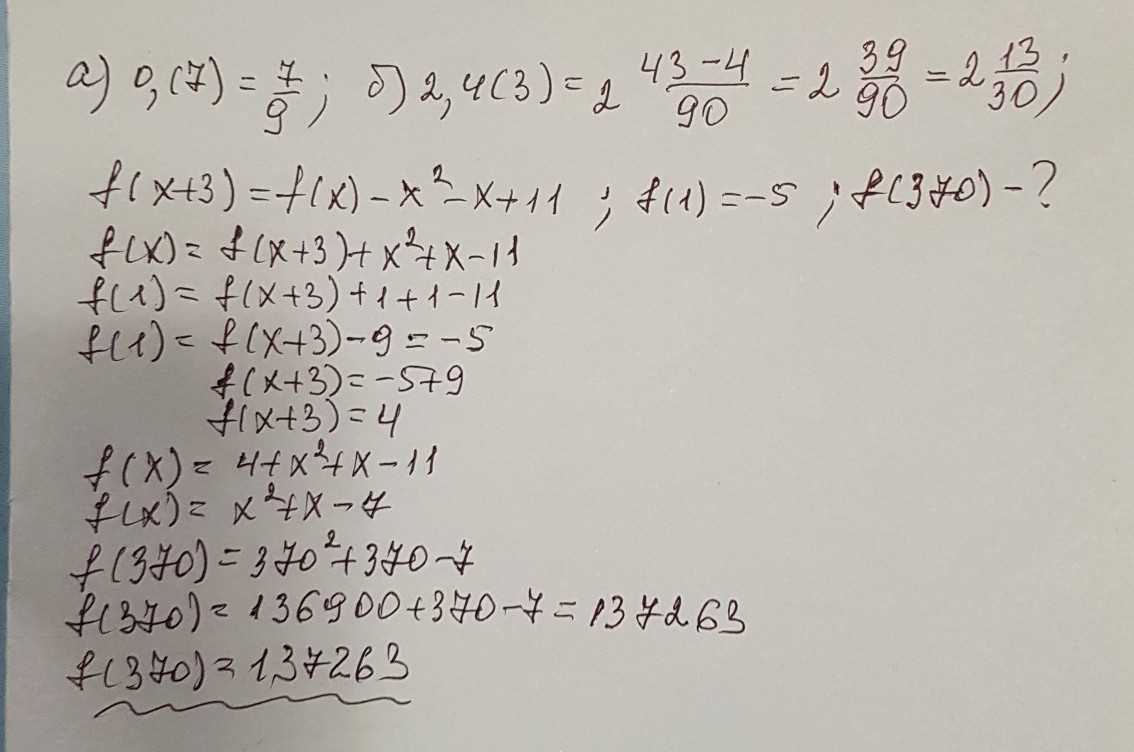 а) 0,(7) = 7/9; б) 2,4(3) = 2 43-4/90 = 2 39/90 = 2 13/30;
f(x+3) = f(x) - x² - x + 11 ; f(1) = -5 ; f(370) - ?
f(x) = f(x+3) + x² + x - 11
f(1) = f(x+3) + 1 + 1 - 11
f(1) = f(x+3) - 9 = -5
f(x+3) = -5+9
f(x+3) = 4
f(x) = 4 + x² + x - 11
f(x) = x² + x - 7
f(370) = 370² + 370 - 7
f(370) = 136900 + 370 - 7 = 137263
f(370) = 137263